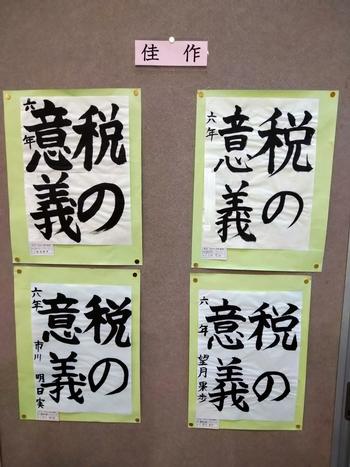 佳作
税の
意義
六年
税の
意義
六年
税の
意義
六年
市川 明日実
税の
意義
六年
望月 果歩